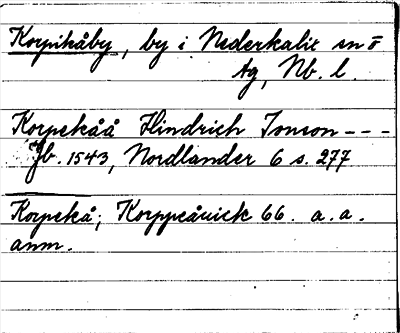 Korpikåby, by i Nederkalix sn o
tg, Nb. l.
Korpekåå Hindrich Jonson - - -
Jb. 1543, Nordlander 6 s. 277
Korpekå; Korppcåuick 66. a. a.
anm.